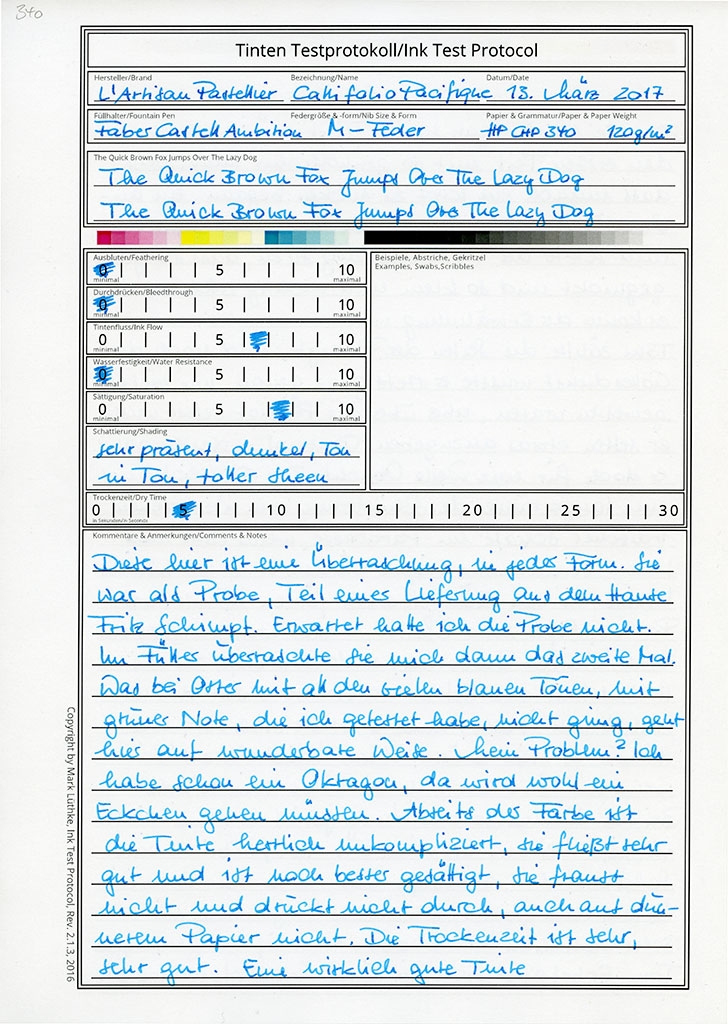 340
Tinten Testprotokoll/Ink Test Protocol
Hersteller/Brand Bezeichnung/Name Datum/Date
L'Artisan Pastellier Callifolio Pacifique 13. März 2017
Füllhalter/Fountain Pen Federgröße & -form/Nib Size & Form Papier & Grammatur/Paper & Paper Weight
Faber Castell Ambition M-Feder HP CHP 340 120g/m²
The Quick Brown Fox Jumps Over The Lazy Dog
The Quick Brown Fox Jumps Over The Lazy Dog
The Quick Brown Fox Jumps Over The Lazy Dog
Ausbluten/Feathering
0 5 10
minimal maximal
Durchdrücken/Bleedthrough
0 5 10
minimal maximal
Tintenfluss/Ink Flow
0 5 10
minimal maximal
Wasserfestigkeit/Water Resistance
0 5 10
minimal maximal
Sättigung/Saturation
0 5 10
minimal maximal
Schattierung/Shading
sehr präsent, dunkel, Ton
in Ton, toller Sheen
Beispiele, Abstriche, Gekritzel
Examples, Swabs,Scribbles
Trockenzeit/Dry Time
0 5 10 15 20 25 30
in Sekunden/in Seconds
Kommentare & Anmerkungen/Comments & Notes
Diese hier ist eine Überraschung, in jeder Form. Sie
war als Probe, Teil eines Lieferung aus dem Hause
Fritz Schimpf. Erwartet hatte ich die Probe nicht.
Im Füller überraschte sie mich dann das zweite Mal.
Was bei Oster mit all den vielen blauen Tönen, mit
grüner Note, die ich getestet habe, nicht ging, geht
hier auf wunderbare Weise. Mein Problem? Ich
habe schon ein Oktagon, da wird wohl ein
Eckchen gehen müssen. Abseits der Farbe ist
die Tinte herrlich unkompliziert, sie fließt sehr
gut und ist noch besser gesättigt, sie franst
nicht und drückt nicht durch, auch auf dün-
nerem Papier nicht. Die Trockenzeit ist sehr,
sehr gut. Eine wirklich gute Tinte
Copyright by Mark Lüthke, Ink Test Protocol, Rev. 2.1.3, 2016